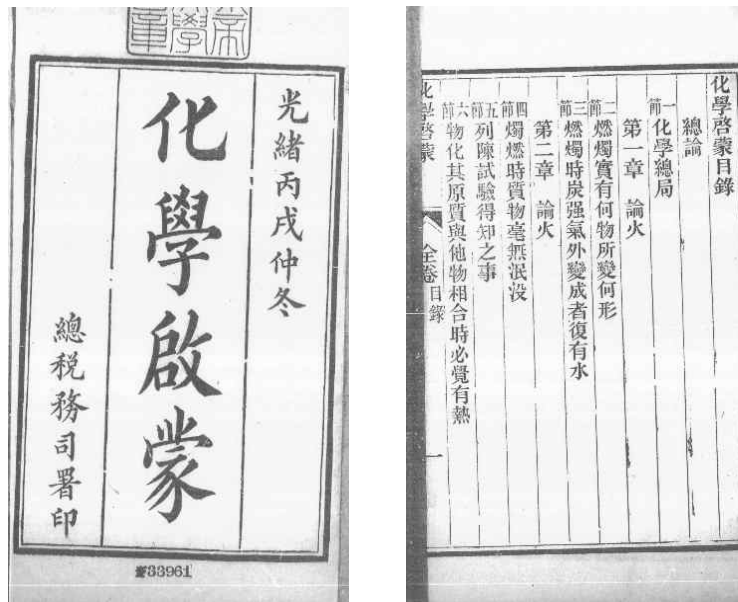 光緒丙戌仲冬
化學啟蒙
總税務司署印
33961
化學啓蒙目錄
總論
一節化學總局
第一章 論火
二節燃燭實有何物所變何形
三節燃燭時炭强氣外變成者復有水
第二章 論火
四節燭燃時質物毫無泯没
五節列陳試驗得知之事
六節物化其原質與他物相合時必覺有熱
化學啓蒙 全卷目錄 一